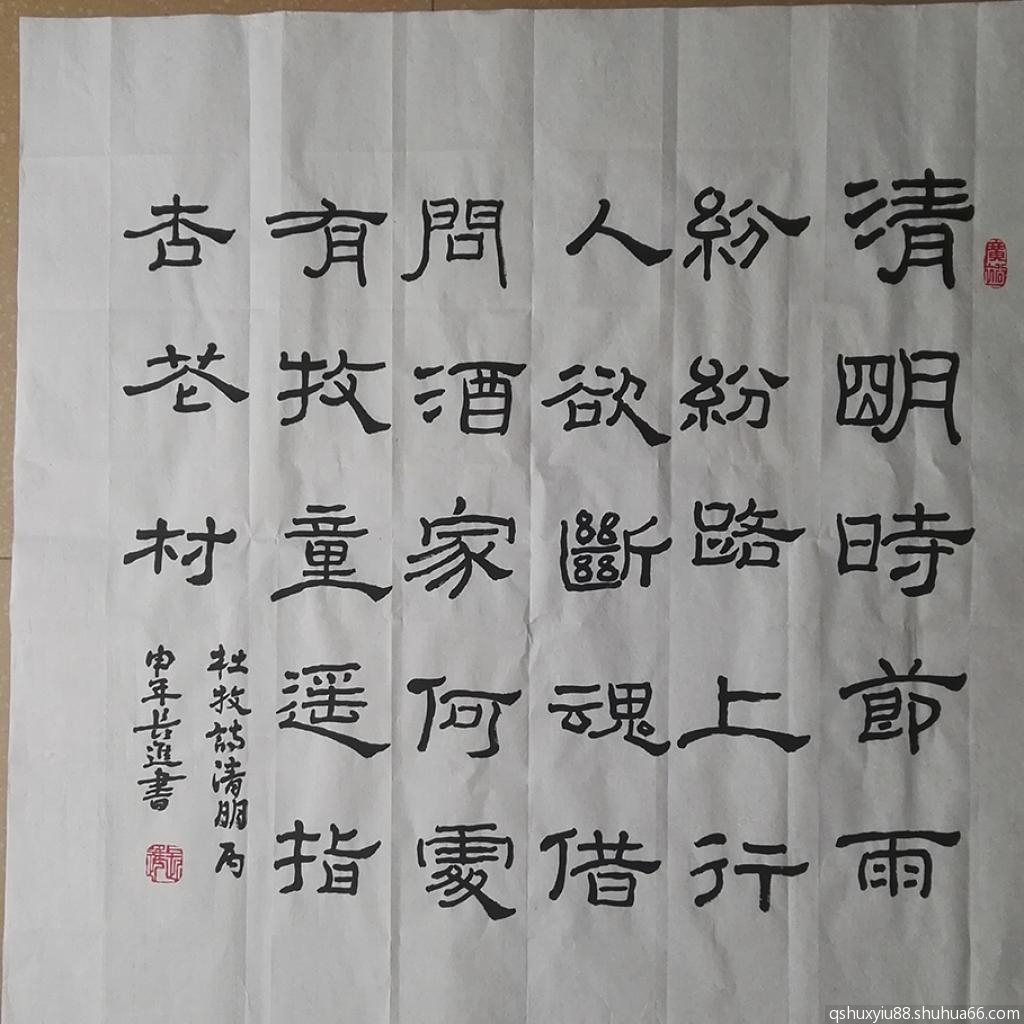 清明時節雨
紛紛路上行
人欲斷魂借
問酒家何處
有牧童遥指
杏花村
杜牧詩清明丙
申年長進書
qshuxyiu88.shuhua66.com